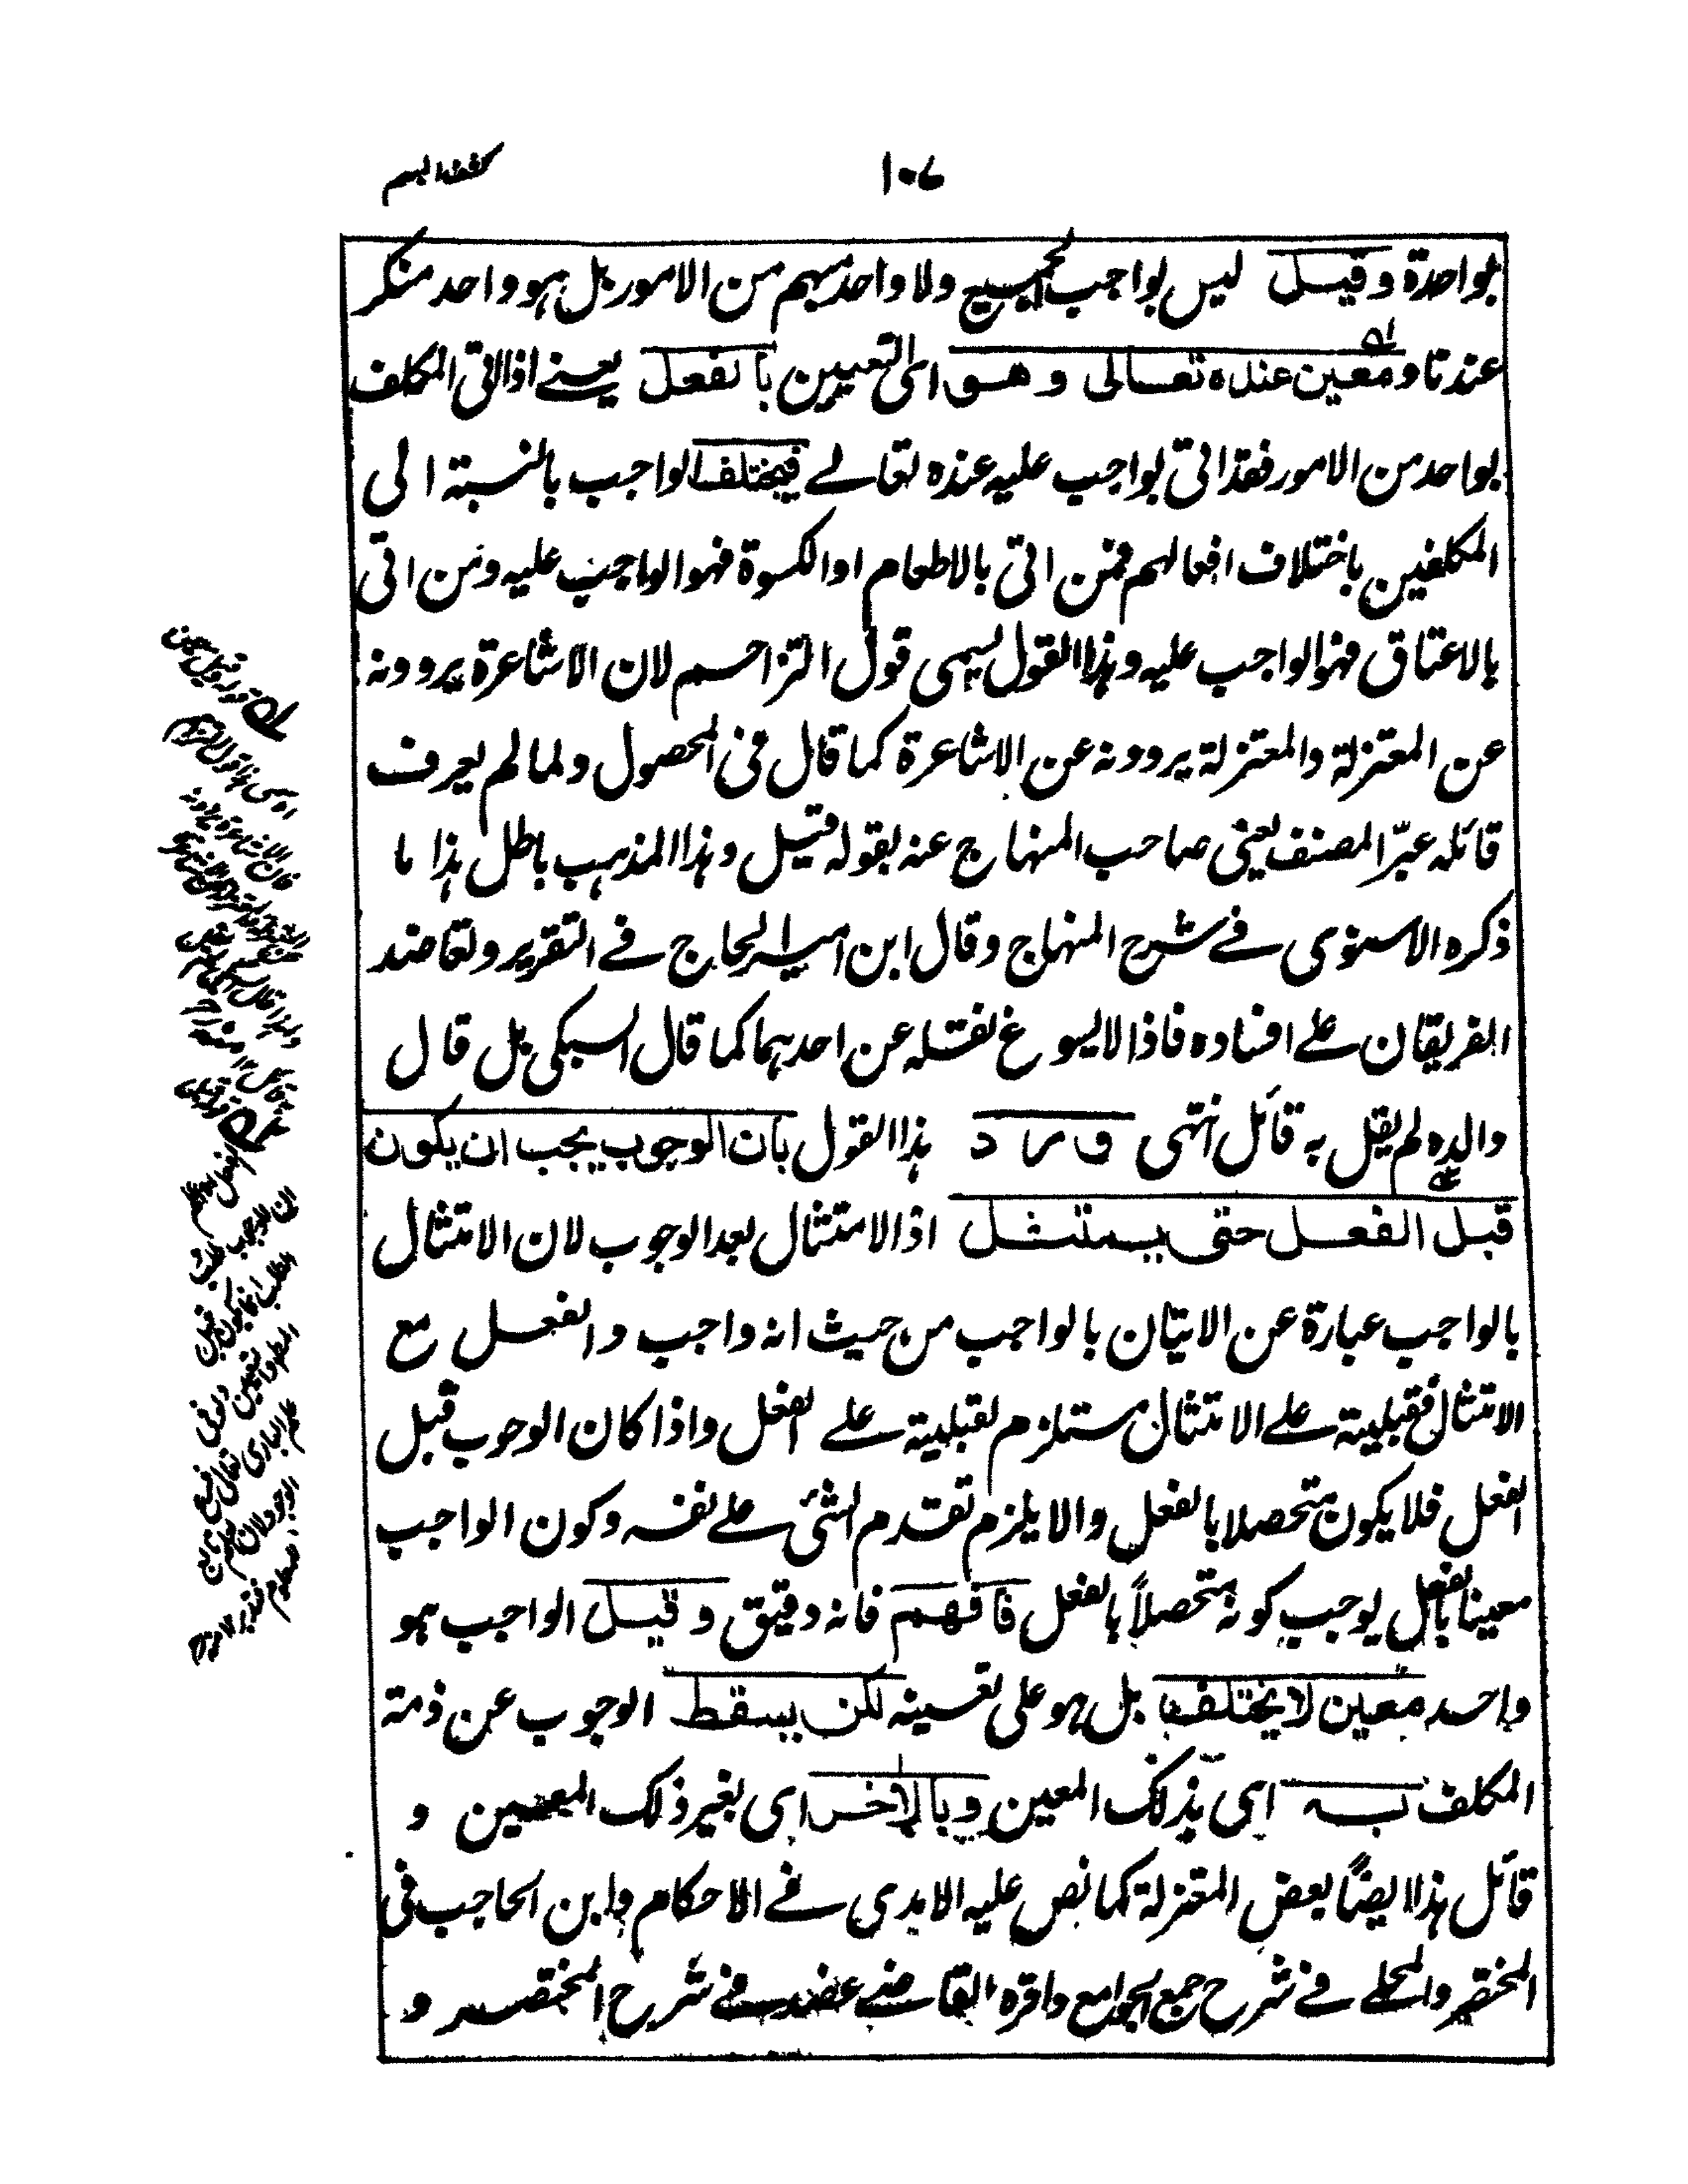 ١٠٧
كشف المبهم
بواحدة وقيل ليس بواجب الجميع ولا واحد مبهم من الامور بل هو واحد منكر
عندنا ومعين عنده تعالى وهو اى التعيين بالفعل يعنى اذا اتى المكلف
بواحد من الامور فقد اتى بواجب عليه عنده تعالى فيختلف الواجب بالنسبة الى
المكلفين باختلاف افعالهم فمن اتى بالاطعام او الكسوة فهو الواجب عليه ومن اتى
بالاعتاق فهو الواجب عليه وهذا القول يسمى قول التزاحم لان الاشاعرة يروونه
عن المعتزلة والمعتزلة يروونه عن الاشاعرة كما قال فى المحصول ولما لم يعرف
قائله عبّر المصنف يعنى صاحب المنهاج عنه بقوله قيل وهذا المذهب باطل هذا ما
ذكره الاسنوى فى شرح المنهاج وقال ابن امير الحاج فى التقرير ولتعاضد
الفريقان على افساده فاذا لا يسوغ نقله عن احدهما كما قال السبكى بل قال
والده لم يقل به قائل انتهى ورد هذا القول بان الوجوب يجب ان يكون
قبل الفعل حتى يمتثل اذ الامتثال بعد الوجوب لان الامتثال
بالواجب عبارة عن الاتيان بالواجب من حيث انه واجب والفعل مع
الامتثال فقبلية على الامتثال مستلزم لقبلية على الفعل واذا كان الوجوب قبل
الفعل فلا يكون متحصلا بالفعل والا يلزم تقدم الشئ على نفسه وكون الواجب
معينا بالفعل يوجب كونه متحصلاً بالفعل فافهم فانه دقيق وقيل الواجب هو
واحد معين لا يختلف بل هو على تعينه لكن يسقط الوجوب عن ذمة
المكلف به اى بذلك المعين وبالاخر اى بغير ذلك المعين و
قائل هذا ايضاً بعض المعتزلة كما نص عليه الامدى فى الاحكام وابن الحاجب فى
المختصر والمحلى فى شرح جمع الجوامع واقره القاضى عضد فى شرح المختصر و